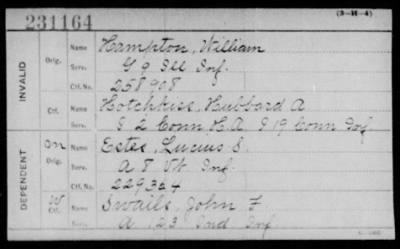 231164
(3-H-4)
INVALID
Orig.
Name Hampton, William
Serv. G 9 Ill Inf.
Ctf. No. 258908
Ctf.
Name Hotchkiss, Hubbard A
Serv. I 2 Conn H.A I 19 Conn Inf
DEPENDENT
On
Orig.
Name Estes, Lucius S.
Serv. A 8 Vt Inf.
Ctf. No. 229364
W
Ctf.
Name Swails, John F.
Serv. A 123 Ind Inf